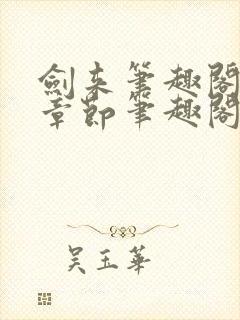 劍来筆趣閣
章節筆趣閣
吴玉華